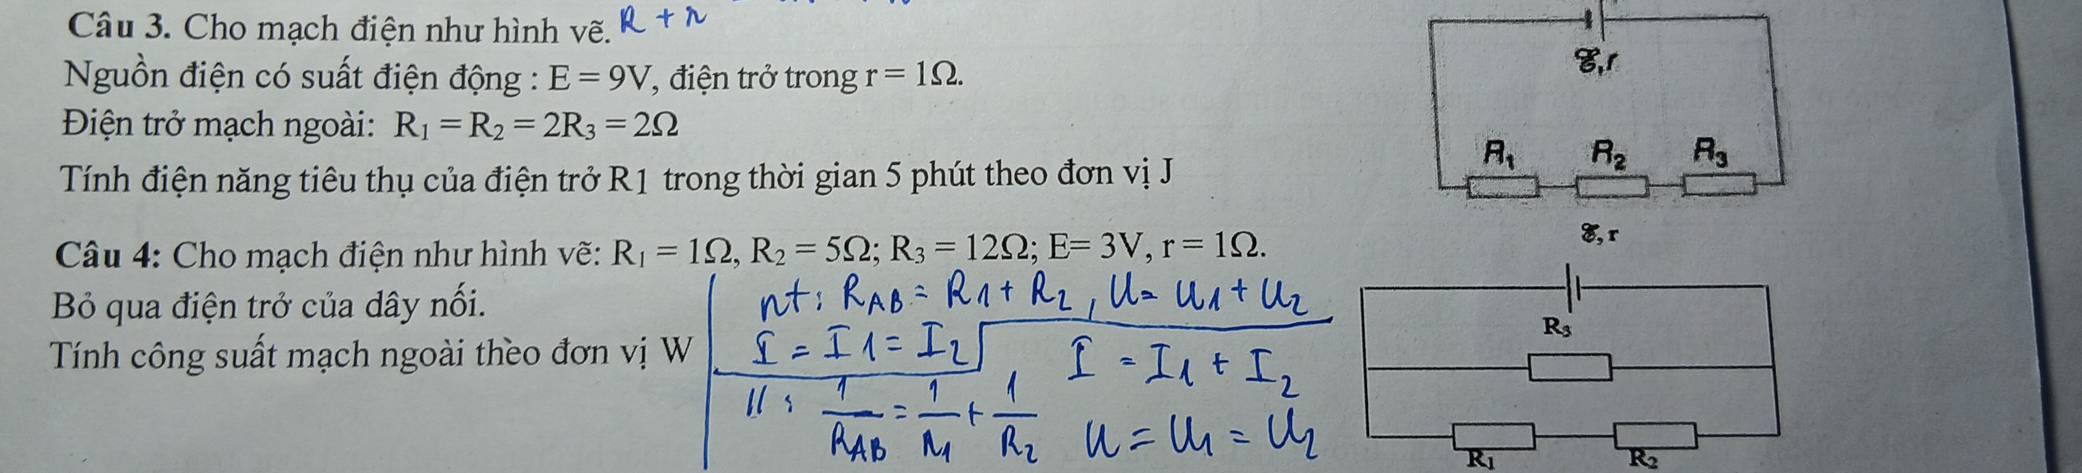 Câu 3. Cho mạch điện như hình vẽ. R + r
Nguồn điện có suất điện động : E = 9V, điện trở trong r = 1Ω.
Điện trở mạch ngoài: R₁ = R₂ = 2R₃ = 2Ω
Tính điện năng tiêu thụ của điện trở R1 trong thời gian 5 phút theo đơn vị J
ℰ,r
R₁ R₂ R₃
Câu 4: Cho mạch điện như hình vẽ: R₁ = 1Ω, R₂ = 5Ω; R₃ = 12Ω; E= 3V, r = 1Ω.
Bỏ qua điện trở của dây nối.
Tính công suất mạch ngoài thèo đơn vị W
nt: R_AB = R1 + R2, U = U1 + U2
I = I1 = I2
// : 1/R_AB = 1/R1 + 1/R2
I = I1 + I2
U = U1 = U2
ℰ, r
R₃
R₁ R₂